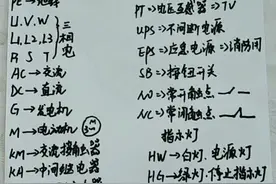 PE → 地线
U.V.W
L1.L2.L3
R S T
三相电
AC → 交流
DC → 直流
G → 发电机
M → 电动机
KM → 交流接触器
KA → 中间继电器
PT → 电压互感器 → TV
UPS → 不间断电源
EPS → 应急电源 → 消防用
SB → 按钮开关
NO → 常开触点
NC → 常闭触点
指示灯
HW → 白灯、电源灯
HG → 绿灯、停止指示灯